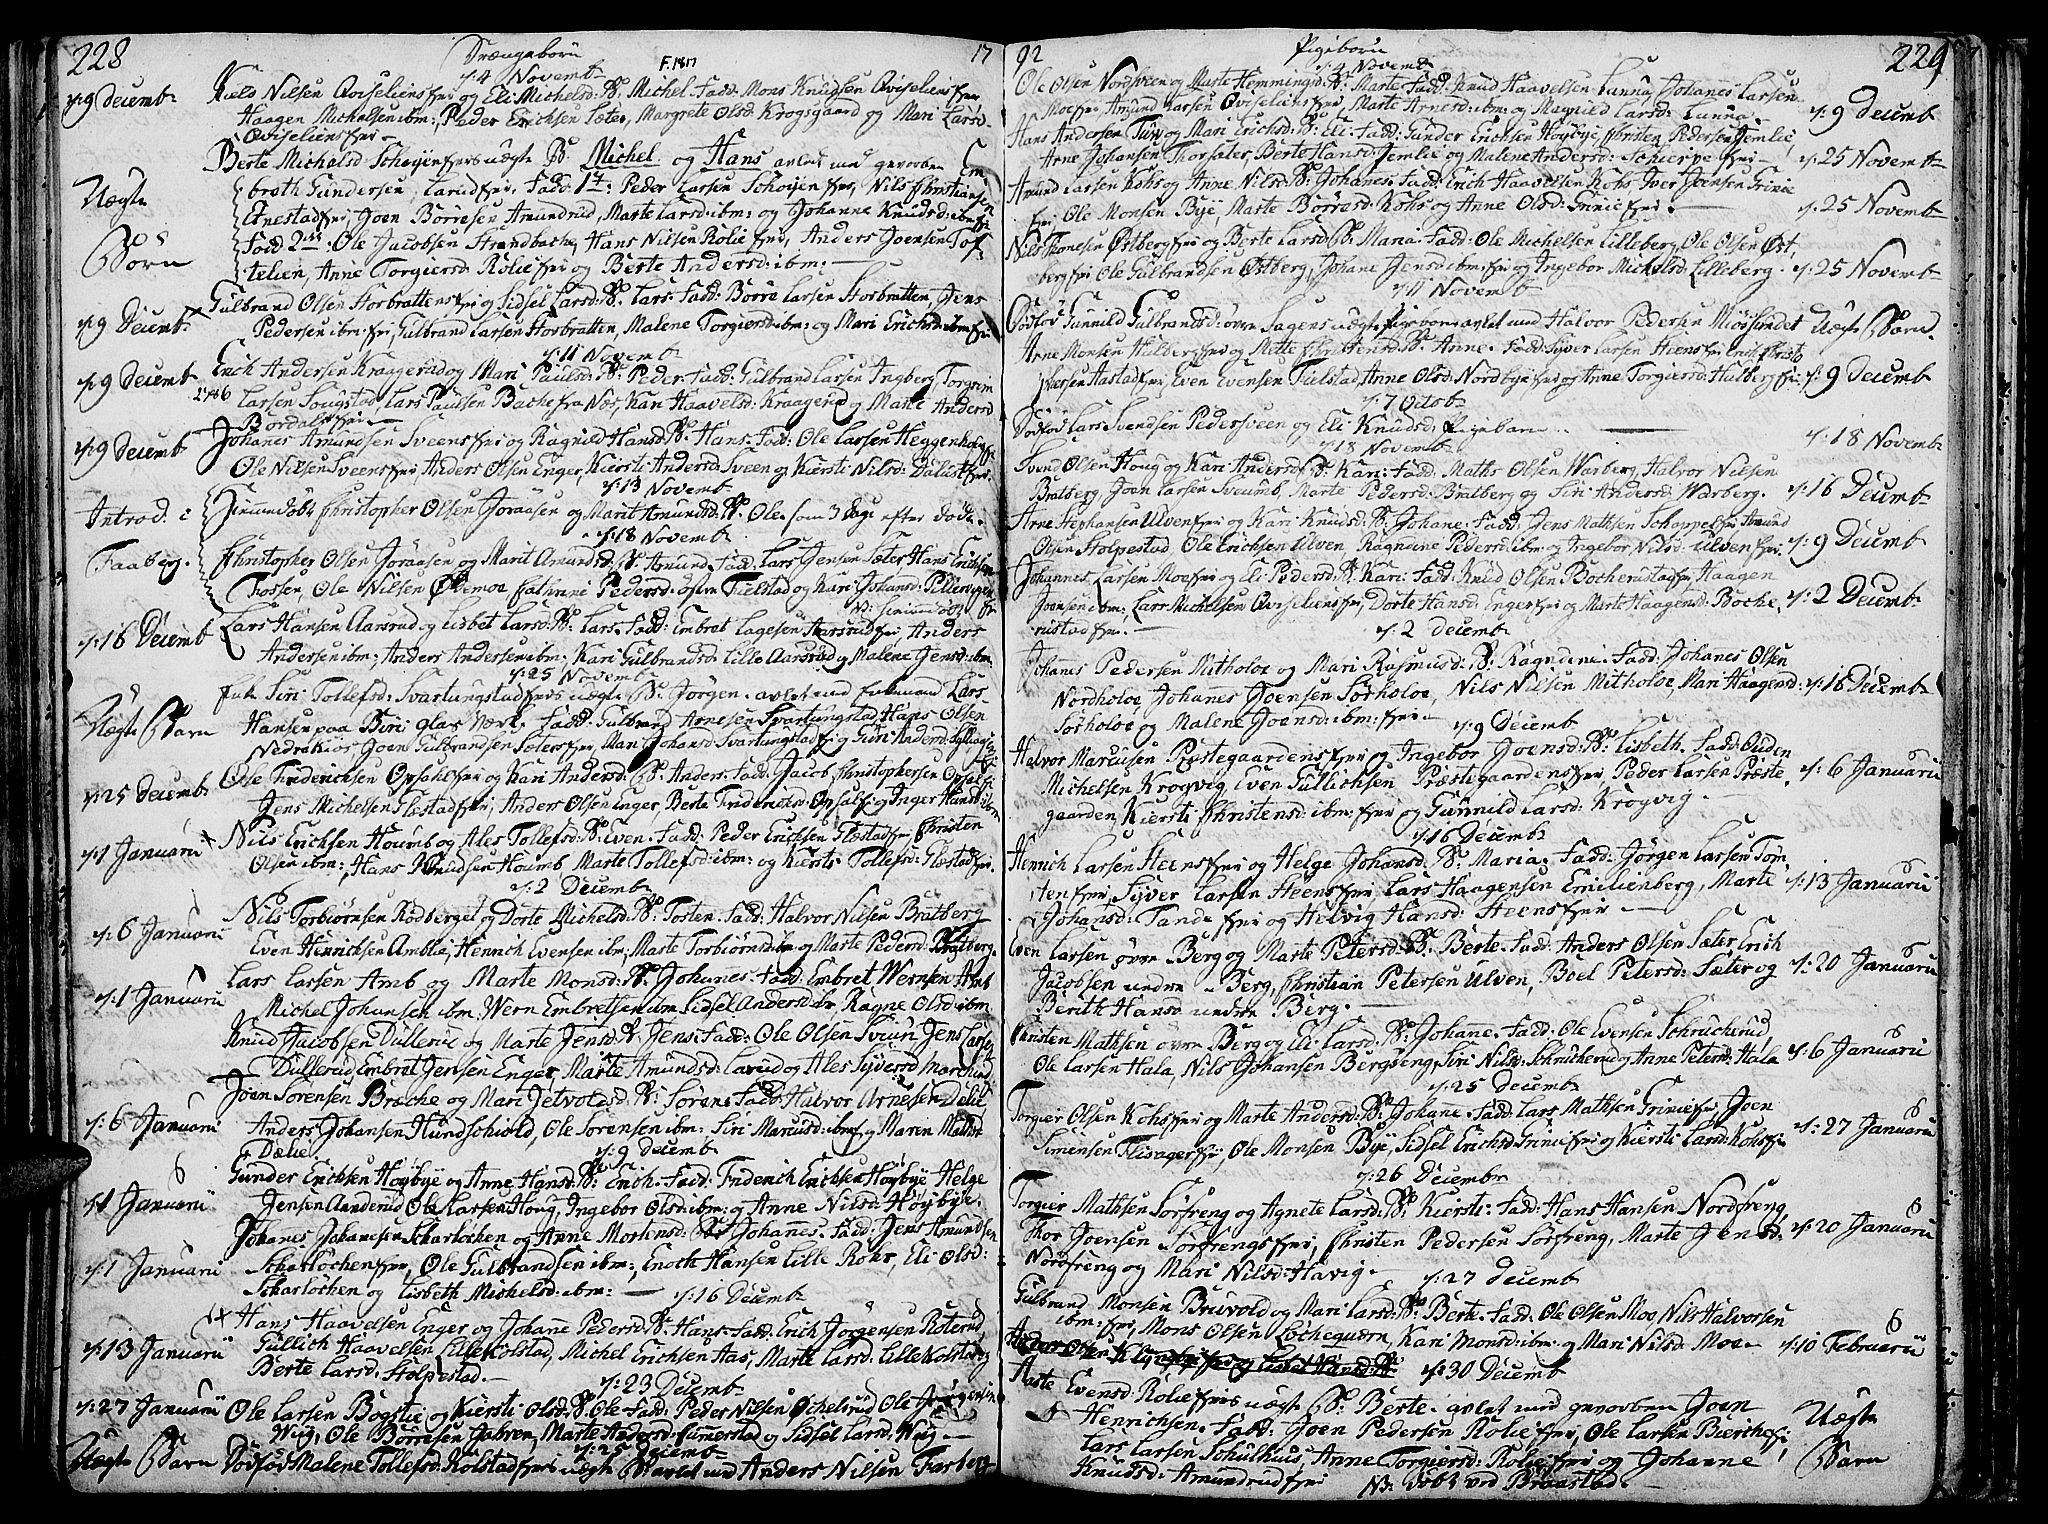 228
Drængebørn
F. 1817
17
d: 4 Novemb
d: 9 Decemb
Kield Nilsen Qviselien fri og Eli Michelsd: B: Michel. Fadd: Mons Knudsen Qviselien fri
Haagen Michelsen ibm:, Peder Erichsen Sæter, Margrete Olsd: Krogsgaard og Mari Larsd:
Qviselien fri
Berte Michelsd Schøyen fris uægte B: Michel og Hans avlet med gevorben Em
Uægte
Børn
broth Gundersen, Larud fri. Fadd 1st: Peder Larsen Schøyen fri, Nils Christiansen
Enestad fri, Joen Børresen Amundrud, Marte Larsd: ibm: og Johanne Knudsd: ibm fri
Fadd 2den: Ole Jacobsen Strandbache, Hans Nilsen Rolie fri, Anders Joensen Tof
telien, Anne Torgiersd: Rolie fri og Berte Andersd: ibm:
d: 9 Decemb
Gulbrand Olsen Storbratten fri og Sidsel Larsd: B: Lars. Fadd: Børre Larsen Storbratten, Jens
Pedersen ibm: fri, Gulbrand Larsen Storbratten, Malene Torgiersd: ibm: og Mari Erichsd: ibm fri
d: 11 Novemb
d: 9 Decemb
Erich Andersen Kraggerud og Mari Paulsd: B: Peder. Fadd: Gulbrand Larsen Ingberg, Torgrim
Larsen Sougstad, Lars Paulsen Bache fra Næs, Kari Haavelsd: Kraagerud og Marte Andersd
Bjørdal fri
d: 9 Decemb
Johanes Amundsen Sveen fri og Ragnild Hansd: B: Hans. Fadd: Ole Larsen Heggenhougen
Ole Nilsen Sveen fri, Anders Olsen Enger, Kiersti Andersd: Sveen og Kiersti Nilsd: Dalust fri
d: 13 Novemb
Introd. i
Faaberg.
Hiemmedøbt Christopher Olsen Joraasen og Marit Amundsd: B: Ole, som 3 Dage efter døde.
d: 18 Novemb
Christopher Olsen Joraasen og Marit Amundsd: B: Amund. Fadd: Lars Jensen Sæter, Hans Erichsen
Fossen, Ole Nilsen Ødemoe, Cathrine Pedersd: Tielstad og Kari Johansd: Pellerviigen
d: 16 Decemb
Lars Hansen Aarsrud og Lisbet Larsd: B: Lars. Fadd: Embret Lagesen Aarsrud fri, Anders
Andersen ibm:, Anders Andersen ibm:, Kari Gulbrandsd: Lille Aarsrud og Malene Jensd: ibm.
d: 25 Novemb
Uægte Barn
Siri Tollefsd: Svartungstad fris uægte B: Jørgen. avlet med Enkemand Lars
Hansen paa Biri Glas Værk. Fadd: Gulbrand Arnesen Svartungstad, Hans Olsen
Nedrekiør, Joen Gulbrandsen Sæter fri, Mari Johansd: Svartungstad fri og Guri Andersd:
d: 25 Decemb
Ole Friderichsen Opsahl fri og Kari Andersd: B: Anders. Fadd: Jacob Christophersen Opsal
Jens Michelsen Glæstad fri, Anders Olsen Enger, Berte Friderichsd: Opsal fri og Inger Hansd: ibm
d: 1 Januarii
Nils Erichsen Houmb og Ales Tollefsd: B: Even. Fadd: Peder Erichsen Glæstad fri, Christen
Olsen ibm:, Hans Knudsen Houmb, Marte Tollefsd: ibm: og Kiersti Tollefsd: Glæstad fri
d: 2 Decemb
d: 6 Januarii
Nils Torbiørnsen Rødberget og Dorte Michelsd: B: Tosten. Fadd: Halvor Nilsen Bratberg
Even Henrichsen Amblie, Henrich Evensen ibm, Marte Torbiørnsd: ibm og Marte Pedersd: Bratberg
d: 1 Januarii
Lars Larsen Amb og Marte Monsd: B: Johanes. Fadd: Embret Wernsen Amb
Michel Johansen ibm, Wern Embretsen ibm, Sidsel Andersd: ibm Ragne Olsd: ibm
Knud Jacobsen Dullerud og Marte Jensd: B: Jens. Fadd: Ole Olsen Sveen, Jens Larsen
Dullerud, Embret Jensen Enger, Marte Amundsd: Larud og Ales Syversd:
d: 6 Januarii
Joen Sørensen Bræche og Mari Jetvoldsd: B: Søren. Fadd: Halvor Arnesen Dælie
Anders Johansen Hundschvold, Ole Sørensen ibm: Siri Marcusd: ibm og Maren
Dælie
d: 9 Decemb
d: 1 Januarii
Gunder Erichsen Høybye og Anne Hansd: B: Erich. Fadd: Friderich Erichsen Høybye, Helge
Jensen Aanderud, Ole Larsen Houg, Ingebor Olsd: ibm: og Anne Nilsd: Høybye.
d: 1 Januarii
Johanes Johanesen Scharløchen og Anne Mortensd: B: Johannes. Fadd: Jens Amundsen
Scharløchen fri, Ole Gulbrandsen ibm:, Enoch Hansen Lille Rohr, Eli Olsd:
Scharløchen og Lisbeth Michelsd: ibm:
d: 16 Decemb
d: 13 Januarii
Hans Haavelsen Enger og Johane Pedersd: B: Hans. Fadd: Erich Jørgensen Roterud
Gullich Haavelsen Lille Kolstad, Michel Erichsen Aas, Marte Larsd: Lille Kolstad og
Berte Larsd: Stolpestad.
d: 23 Decemb
d: 27 Januarii
Ole Larsen Bogstie og Kiersti Olsd: B: Ole. Fadd: Peder Nilsen Ochelsrud, Ole
Wiig, Ole Børresen Jabren, Marte Andersd: og Sidsel Larsd: Wiig.
d: 25 Decemb
Uægte Barn
Dødfød Malene Tollefsd: Kolstad fris uægte B: avlet med Anders Nilsen Farberg
92
Pigebørn
229
d: 4 Novemb
Ole Olsen Nordsveen og Marte Hemmingsd: B: Marte. Fadd: Knud Haavelsen Lunna, Johanes Larsen
Moe fri, Amund Larsen Qviselien fri, Marte Arnesd: ibm: og Magnild Larsd: Lunna
d: 9 Decemb
Hans Andersen Turv og Mari Erichsd: B: Eli. Fadd: Gunder Erichsen Høybye, Christen Pedersen Jemlie
Arne Johansen Thorsæter, Berte Hansd: Jemlie og Malene Andersd: Schierpe fri
d: 25 Novemb
Amund Larsen Kohs og Anne Nilsd: B: Johanes. Fadd: Erich Haavelsen Kohs, Iver Joensen Trinie
fri, Ole Monsen Bye, Marte Børresd: Kohs og Anne Olsd: Trinie fri
d: 25 Novemb
Nils Tomesen Østberg fri og Berte Larsd: B: Maria. Fadd: Ole Michelsen Lilleberg, Ole Olsen Øst,
berg fri, Ole Gulbrandsen Østberg, Johane Jensd: ibm: fri og Ingebor Michelsd: Lilleberg.
d: 25 Novemb
d: 11 Novemb
Dødfød Gunnild Gulbrandsd: øvre Sagens uægte Pigebarn avlet med Halvor Pedersen Miøsundet
Uægte Barn.
Arne Monsen Hulberg fri og Mette Christensd: B: Anne. Fadd: Syver Larsen Heens fri, Erich Christo
phersen Aastad fri, Even Evensen Tielstad, Anne Olsd: Nordbye fri og Anne Torgiersd: Hulberg fri
d: 9 Decemb
d: 7 Octob
Dødfød Lars Svendsen Pedersveen og Eli Knudsd: Pigebarn
d: 18 Novemb
d: 18 Novemb
Svend Olsen Houg og Kari Andersd: B: Kari. Fadd: Maths Olsen Warberg, Halvor Nilsen
Bratberg, Joen Larsen Sveumb, Marte Pedersd: Bratberg og Siri Andersd: Warberg.
d: 16 Decemb
Arne Stephansen Ulven fri og Kari Knudsd: B: Johane. Fadd: Jens Mathsen Schappel fri, Amund
Olsen Stolpestad, Ole Erichsen Ulven, Ragndine Pedersd: ibm: og Ingebor Nilsd: Ulven fri
d: 9 Decemb
Johannes Larsen Moe fri og Eli Pedersd: B: Kari. Fadd: Knud Olsen Bocherustad fri, Haagen
Joensen ibm:, Lars Michelsen Qviselien fri, Dorte Hansd: Enger fri og Marte Haagensd: Boche,
rustad fri.
d: 2 Decemb
d: 2 Decemb
Johanes Pedersen Mitholoe og Mari Rasmusd: B: Ragndine. Fadd: Johanes Olsen
Nordholoe, Johannes Joensen Sørholoe, Nils Nilsen Mitholoe, Mari Haagensd:
Sørholoe og Malene Joensd: ibm: fri
d: 16 Decemb
d: 9 Decemb
Halvor Marcusen Præstegaarden fri og Ingebor Joensd: B: Lisbeth. Fadd: Ouden
Michelsen Krogvig, Even Gullichsen Præstegaarden fri, Peder Larsen Præste,
gaarden, Kiersti Christensd: ibm: fri og Gunnild Larsd: Krogvig
d: 6 Januarii
d: 16 Decemb
Henrich Larsen Heens fri og Helge Johansd: B: Maria. Fadd: Jørgen Larsen Tøm
ten fri, Syver Larsen Heens fri, Lars Haagensen Emilienberg, Marte
Johansd: Tande fri og Helvig Hansd: Heens fri
d: 13 Januarii
Even Larsen øvre Berg og Marte Petersd: B: Berte. Fadd: Anders Olsen Sæter, Erich
Jacobsen nedre Berg, Christian Petersen Ulven, Boel Petersd: Sæter og
Berith Hansd: nedre Berg.
d: 20 Januarii
Christen Mathsen øvre Berg og Eli Larsd: B: Johane. Fadd: Ole Evensen Schrucherud
Ole Larsen Hala, Nils Johansen Bergseng, Siri Nilsd: Schrucherud og Anne Petersd: Hala
d: 6 Januarii
d: 25 Decemb
Torgier Olsen Kohs fri og Marte Andersd: B: Johane. Fadd: Lars Mathsen Trinie fri, Joen
Simensen Flisager fri, Ole Monsen Bye, Sidsel Erichsd: Trinie fri og Kiersti Larsd: Kohs fri
d: 27 Januarii
d: 26 Decembr
Torgier Mathsen Sørfreng og Agnete Larsd: B: Kiersti. Fadd: Hans Hansen Nordfreng
Thor Joensen Sørfreng fri, Christen Pedersen Sørfreng, Marte Jensd:
Nordfreng og Mari Nilsd: Havig.
d: 20 Januarii
d: 27 Decemb
Gulbrand Monsen Bruvold og Mari Larsd: B: Berte. Fadd: Ole Olsen Moe, Nils Halvorsen
ibm: fri, Mons Olsen Løchequærn, Kari Monsd: ibm: og Mari Nilsd: Moe
d: 10 Februarii
d: 30 Decemb
Marte Evensd: Rolie fris uægte B: Berte. avlet med gevorben Joen
Henrichsen. Fadd: Joen Pedersen Rolie fri, Ole Larsen Bierche fri
Lars Larsen Schulhuus, Anne Torgiersd: Rolie fri og Johanne
Knudsd: Amundrud fri
Uægte
Barn
NB: døbt ved Braastad.